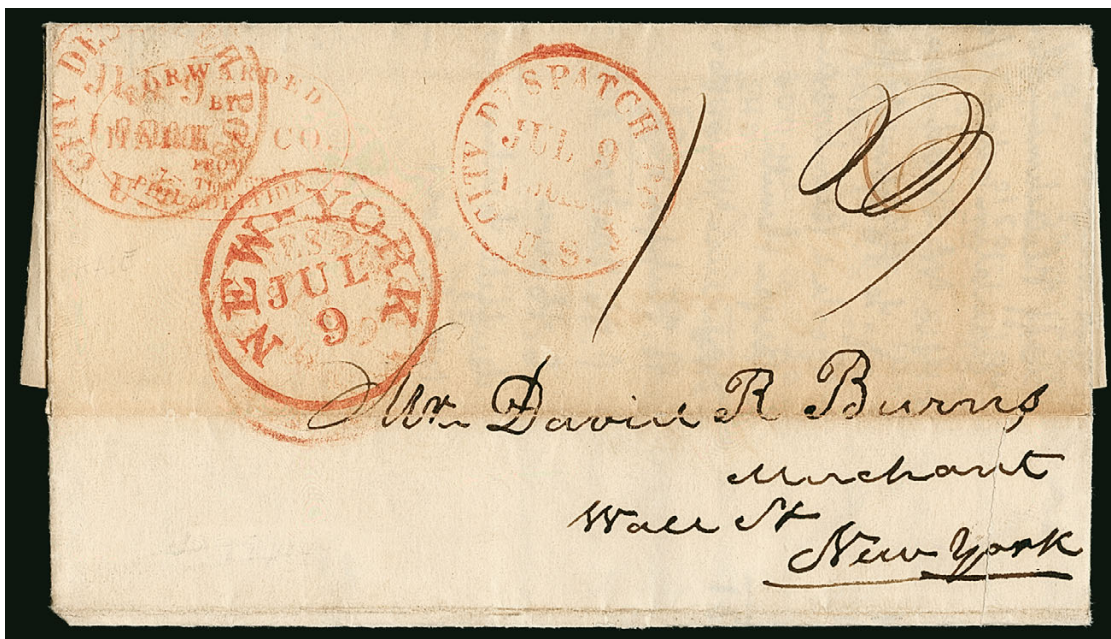 CITY DESPATCH POST
JUL 9
U.S.
FORWARDED
BY
& CO.
FROM
PHILADELPHIA
CITY DESPATCH POST
JUL 9
U.S.
NEW-YORK
JUL
9
Mr. David R Burns
Merchant
Wall St
New York